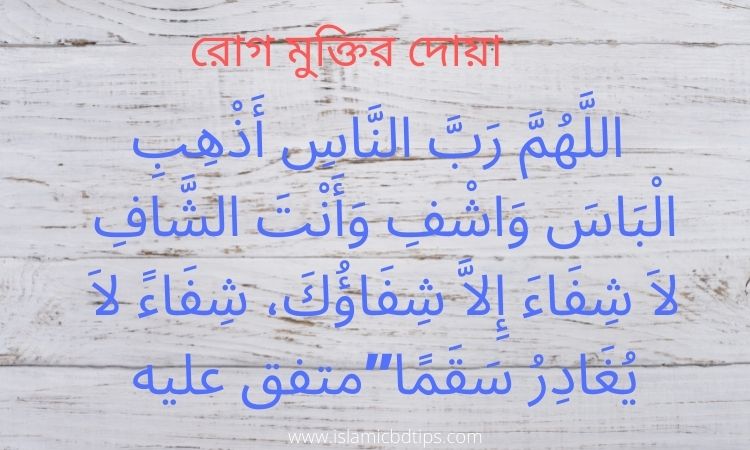 রোগ মুক্তির দোয়া
اللَّهُمَّ رَبَّ النَّاسِ أَذْهِبِ
الْبَاسَ وَاشْفِ وَأَنْتَ الشَّافِ
لاَ شِفَاءَ إِلاَّ شِفَاؤُكَ، شِفَاءً لاَ
يُغَادِرُ سَقَمًا"متفق عليه
www.islamicbdtips.com